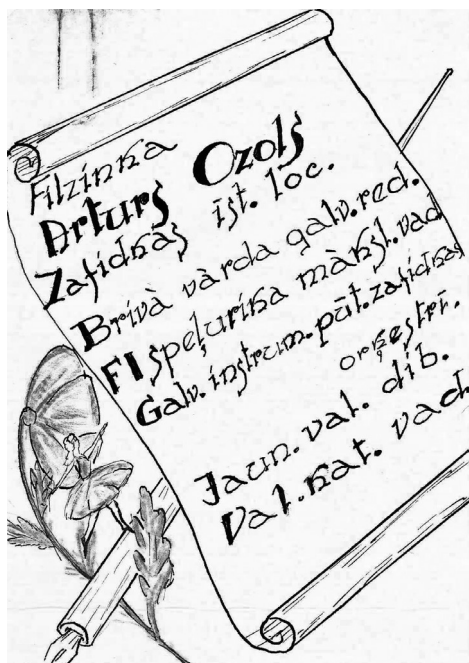 Filzinka
Arturs Ozols
Zafidnās īst. loc.
Brīvà vàrda galv. red.
FI speļurīķa màksl. vad.
Galv. instrum. pūt. zafidnas
orķestrī.
Jaun. val. dib.
Val. kat. vad.